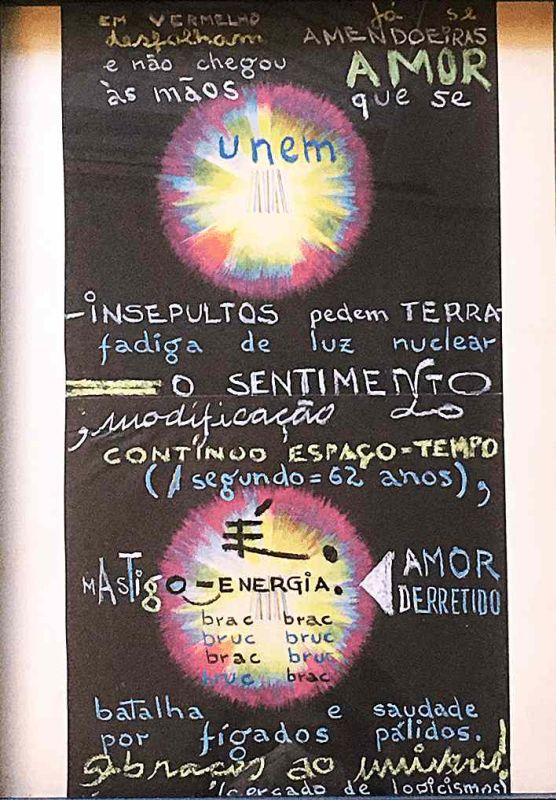 EM VERMELHO já se
desfolham AMENDOEIRAS
e não chegou AMOR
às mãos que se
unem
-INSEPULTOS pedem TERRA-
fadiga de luz nuclear
O SENTIMENTO
;modificação do
CONTÍNUO ESPAÇO=TEMPO
(1 segundo=62 anos),
É.
MASTIgo-ENERGIA. AMOR
DERRETIDO
brac brac
bruc bruc
brac brac
bruc bruc
brac
batalha e saudade
por fígados pálidos.
abraços ao universo!
(cercado de logicismos)